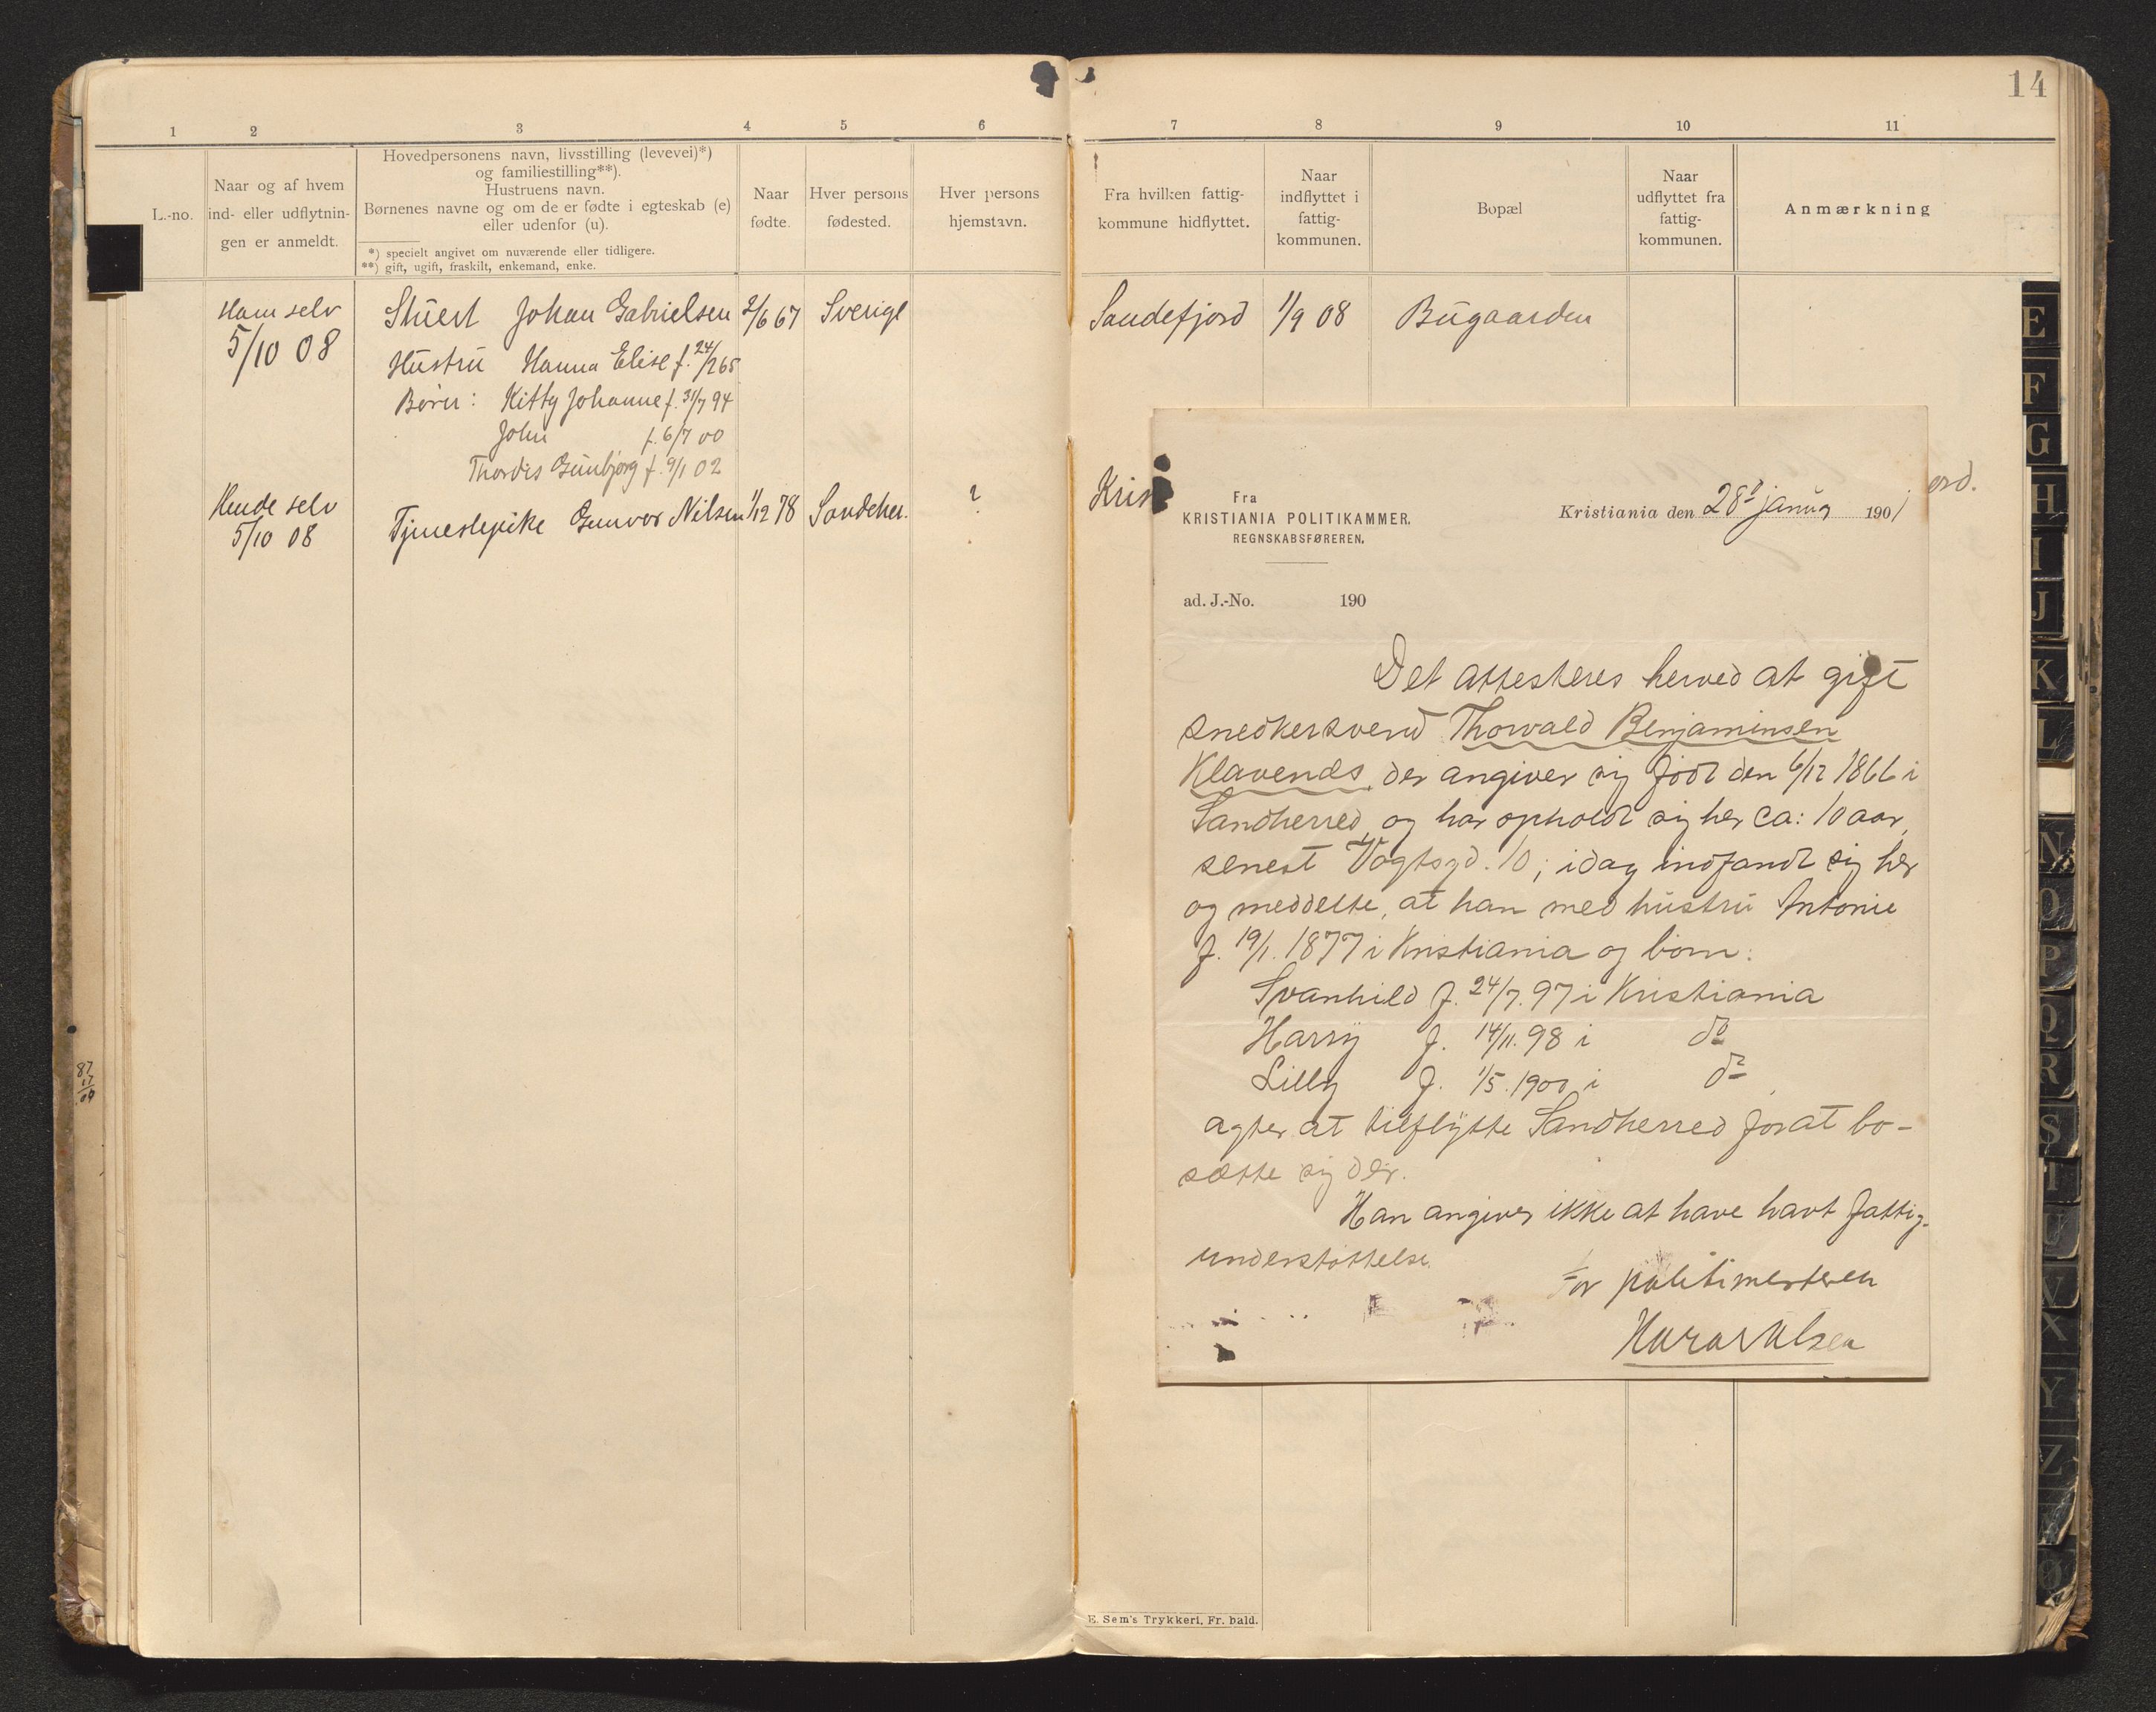 14
1 2 3 4 5 6 7 8 9 10 11
L.-no.
Naar og af hvem
ind- eller udflytnin-
gen er anmeldt.
Hovedpersonens navn, livsstilling (levevei)*)
og familiestilling**).
Hustruens navn.
Børnenes navne og om de er fødte i egteskab (e)
eller udenfor (u).
*) specielt angivet om nuværende eller tidligere.
**) gift, ugift, fraskilt, enkemand, enke.
Naar
fødte.
Hver persons
fødested.
Hver persons
hjemstavn.
Fra hvilken fattig-
kommune hidflyttet.
Naar
indflyttet i
fattig-
kommunen.
Bopæl
Naar
udflyttet fra
fattig-
kommunen.
Anmærkning
Ham selv
5/10 08
Stuert Johan Gabrielsen 2/6 67 Sverige
Hustru Hanna Elise f. 24/2 65
Børn: Kitty Johanne f. 31/7 94
John f. 6/7 00
Thordis Gunbjørg f. 9/1 02
Hende selv
5/10 08
Tjenestepike Gunvor Nilsen 1/12 78 Sandeher. ?
Sandefjord 1/9 08 Bugaarden
Kris
ord.
Fra
KRISTIANIA POLITIKAMMER.
REGNSKABSFØREREN.
Kristiania den 28d januar 1901
ad. J.-No. 190
Det attesteres herved at gift
snedkersvend Thorvald Benjaminsen
Klavenæs, der angiver sig født den 6/12 1866 i
Sandherred, og har opholdt sig her ca: 10 aar,
senest Vogtsgd. 10; idag indfandt sig her
og meddelte, at han med hustru Antonie
f. 19/1. 1877 i Kristiania og børn:
Svanhild f. 24/7. 97 i Kristiania
Harry f. 14/11. 98 i do
Lilly f. 1/5. 1900 i do
agter at tilflytte Sandherred for at bo-
sætte sig der.
Han angiver ikke at have havt fattig-
understøttelse.
For politimesteren
Harald Olsen
E. Sem's Trykkeri, Fr. hald.
87
17
04
E
F
G
H
I
J
K
L
N
O
P
Q
R
S
T
U
V
X
Y
Z
Æ
Ø